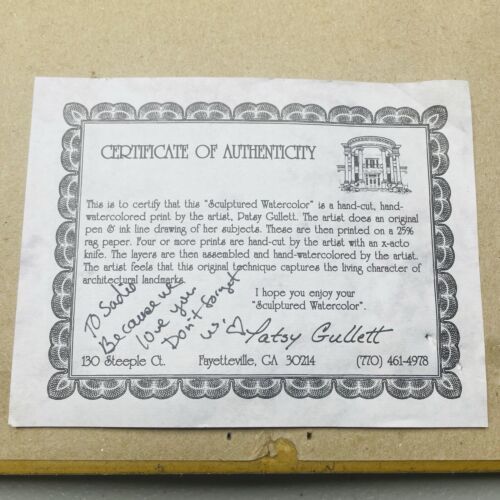 CERTIFICATE OF AUTHENTICITY
This is to certify that this "Sculptured Watercolor" is a hand-cut, hand-
watercolored print by the artist, Patsy Gullett. The artist does an original
pen & ink line drawing of her subjects. These are then printed on a 25%
rag paper. Four or more prints are hand-cut by the artist with an x-acto
knife. The layers are then assembled and hand-watercolored by the artist.
The artist feels that this original technique captures the living character of
architectural landmarks.
I hope you enjoy your
"Sculptured Watercolor".
To Sadie
Because we
love you
Don't forget
us!
Patsy Gullett
130 Steeple Ct. Fayetteville, GA 30214 (770) 461-4978